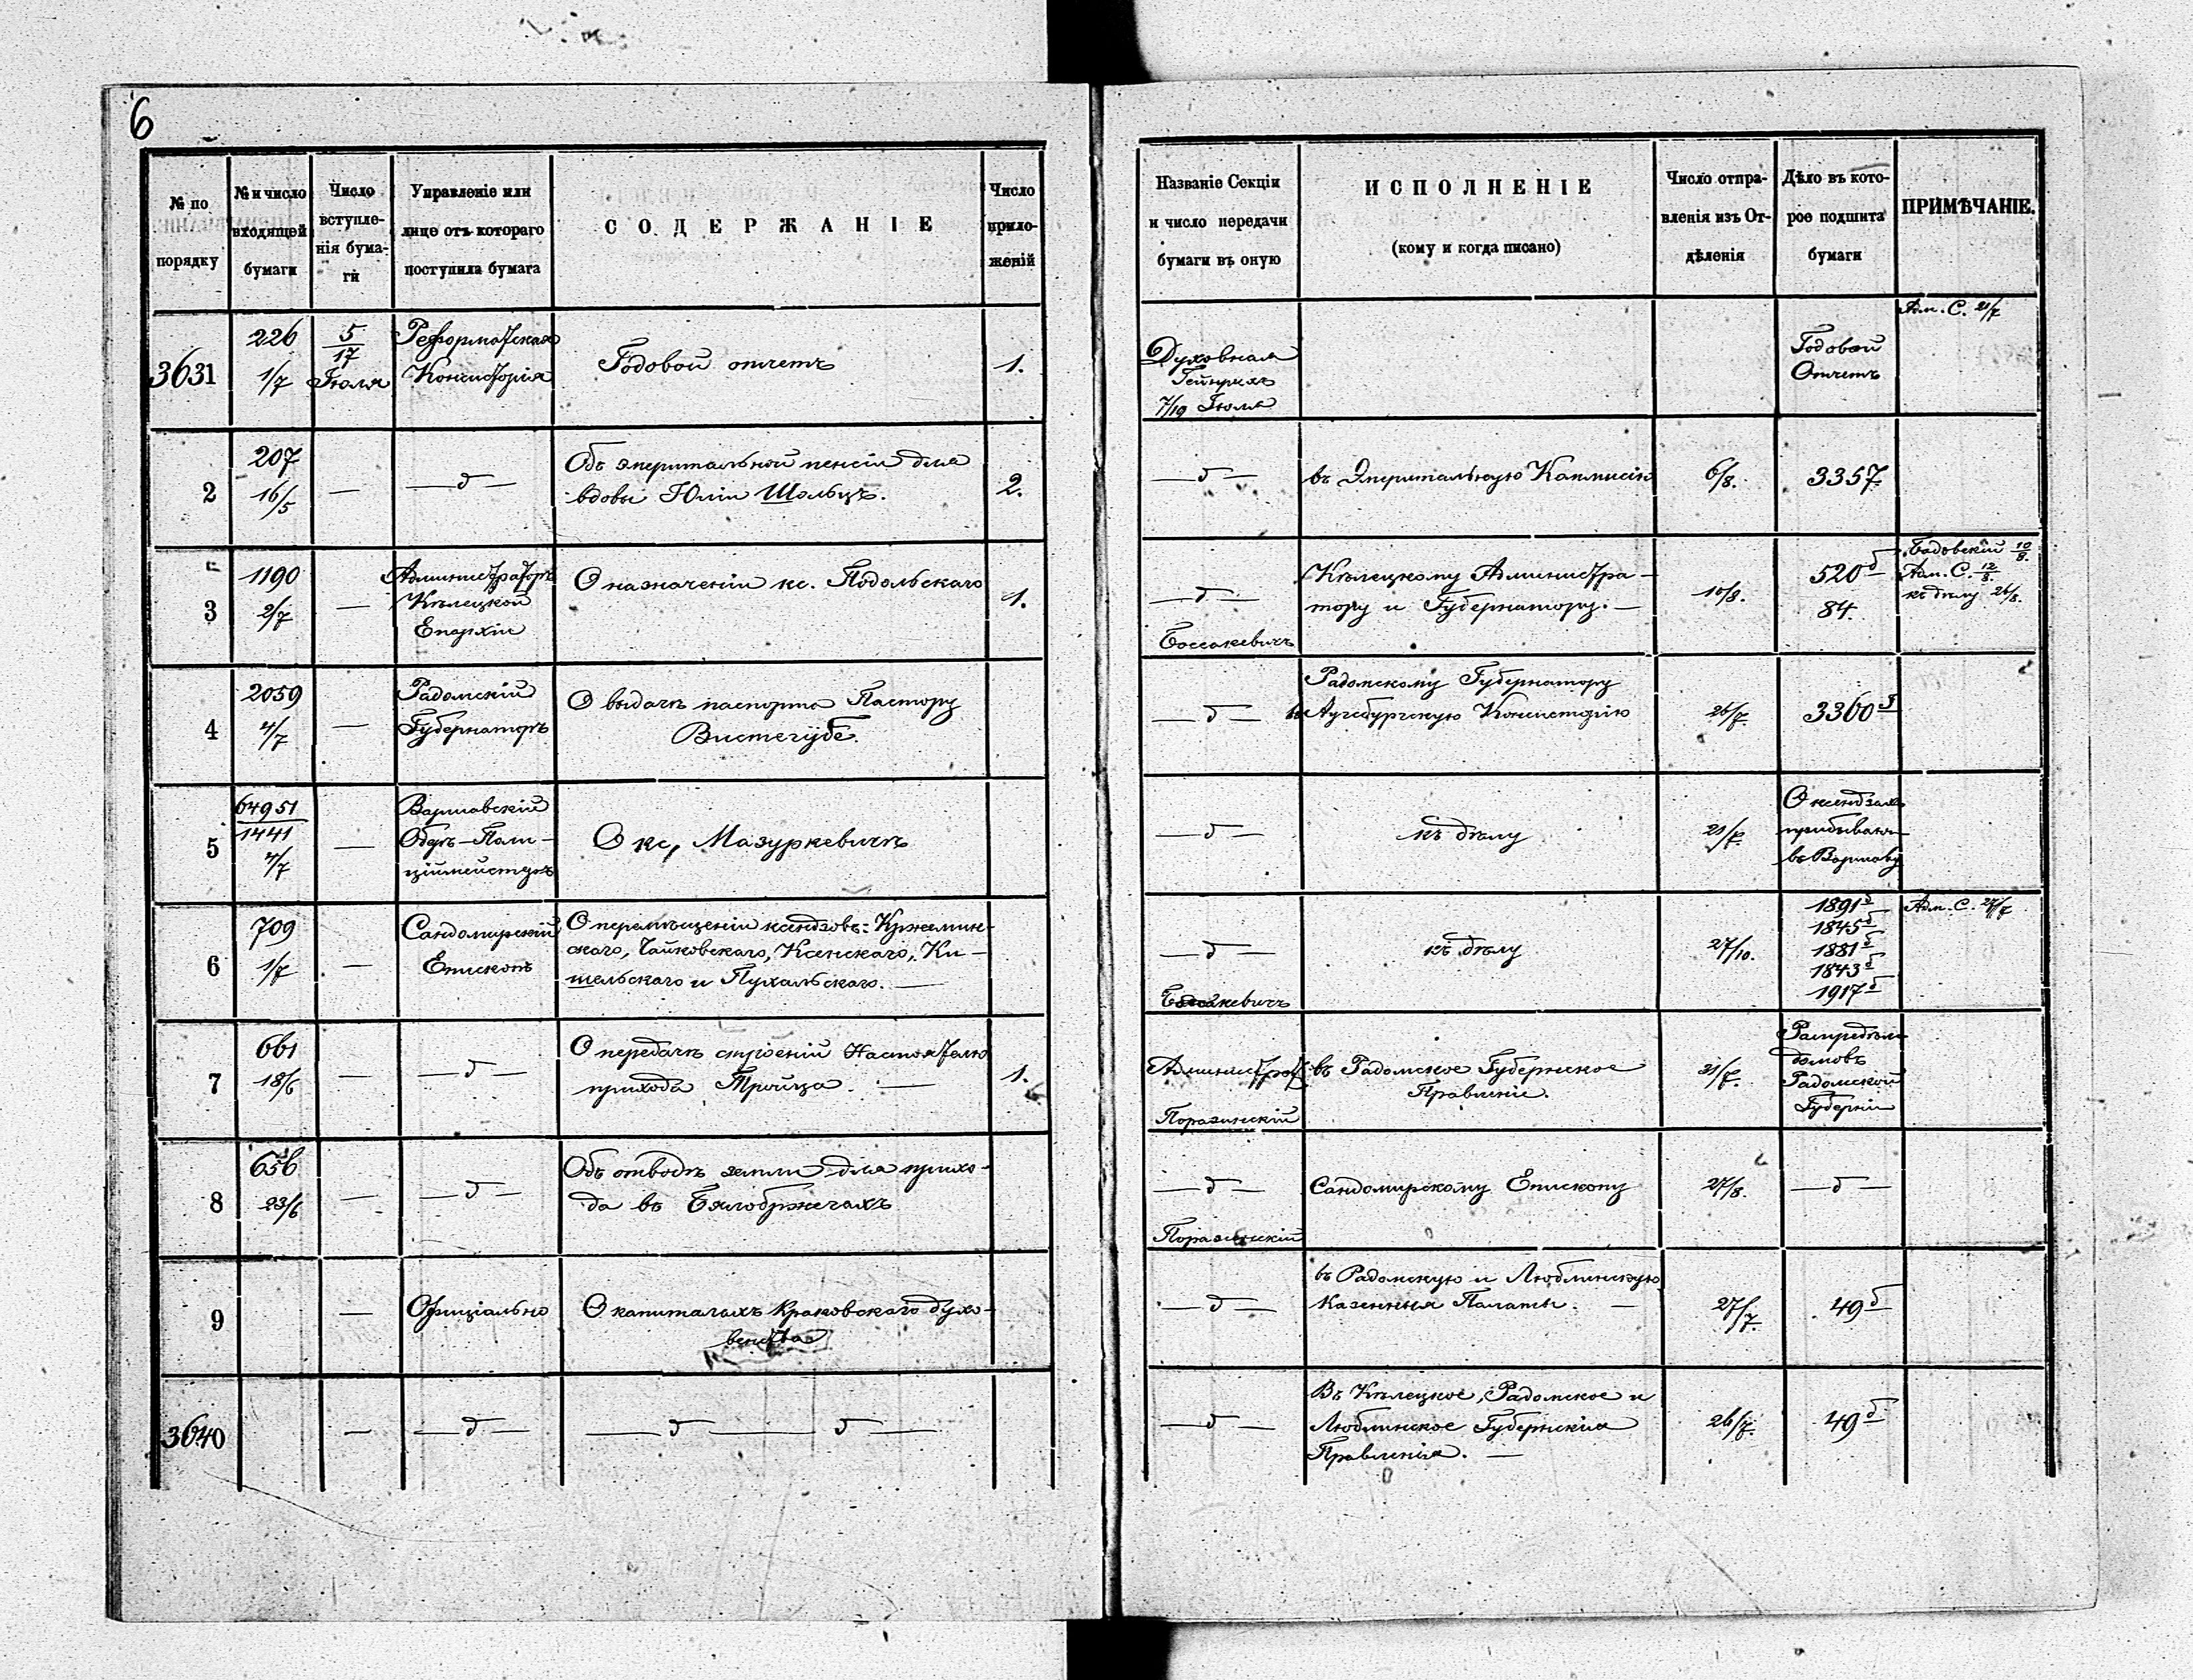 6
№ по порядку
№ и число входящей бумаги
Число вступле-
нія бума-
ги
Управленіе или
лице отъ котораго
поступила бумага
СОДЕРЖАНІЕ
Число
прило-
женій
Названіе Секціи
и число передачи
бумаги въ оную
ИСПОЛНЕНІЕ
(кому и когда писано)
Число отпра-
вленія изъ От-
дѣленія
Дѣло въ кото-
рое подшита
бумаги
ПРИМѢЧАНІЕ.
3631
226
1/7
5/17
Іюля
Реформатская
Консисторія
Годовой отчетъ
1.
Духовная
7/19 Іюля
Годовой
Отчетъ
Адм. С. 21/7
2
207
16/5
—
— д —
Объ эмеритальной пенсіи для
вдовы Юліи Шольцъ.
2.
— д —
въ Эмеритальную Коммисію
6/8.
3357
3
1190
2/7
—
Администраторъ
Кѣлецкой
Епархіи
О назначеніи кс. Подольскаго
1.
— д —
Боссакевичъ
Кѣлецкому Администра-
тору и Губернатору. —
10/8.
520 д
84.
Бадовскій 10/8.
Адм. С. 12/8.
къ дѣлу 26/8.
4
2059
4/7
—
Радомскій
Губернаторъ
О выдачѣ паспорта Пастору
Вистегубе.
— д —
Радомскому Губернатору
въ Аугсбургскую Консисторію
26/7.
3360 д
5
64951
1441
4/7
—
Варшавскій
Оберъ-Поли-
ціймейстеръ
О кс, Мазуркевичѣ
— д —
къ дѣлу
21/7.
О ксендзахъ
прибывающ.
въ Варшаву
6
709
1/7
—
Сандомирскій
Епископъ
О перемѣщеніи ксендзовъ: Кржемин-
скаго, Чайковскаго, Ксенскаго, Ки-
шельскаго и Пухальскаго. —
— д —
Боссакевичъ
къ дѣлу
27/10.
1891 д
1845 д
1881 д
1843 д
1917 д
Адм. С. 27/7
7
661
18/6
—
— д —
О передачѣ строеній Настоятелю
прихода Тройца. —
1.
Администрат.
Поразинскій
въ Радомское Губернское
Правленіе.
31/7.
Распредѣл.
домовъ
Радомской
Губерніи
8
656
23/6
—
— д —
Объ отводѣ земли для прихо-
да въ Бялобржегахъ
— д —
Поразинскій
Сандомирскому Епископу
27/8.
— д —
9
—
Офиціально
О капиталахъ Краковскаго духо-
венства
— д —
въ Радомскую и Люблинскую
Казенныя Палаты. —
27/7.
49 д
3640
—
— д —
— д — д —
— д —
Въ Кѣлецкое, Радомское и
Люблинское Губернскія
Правленія. —
26/7.
49 д